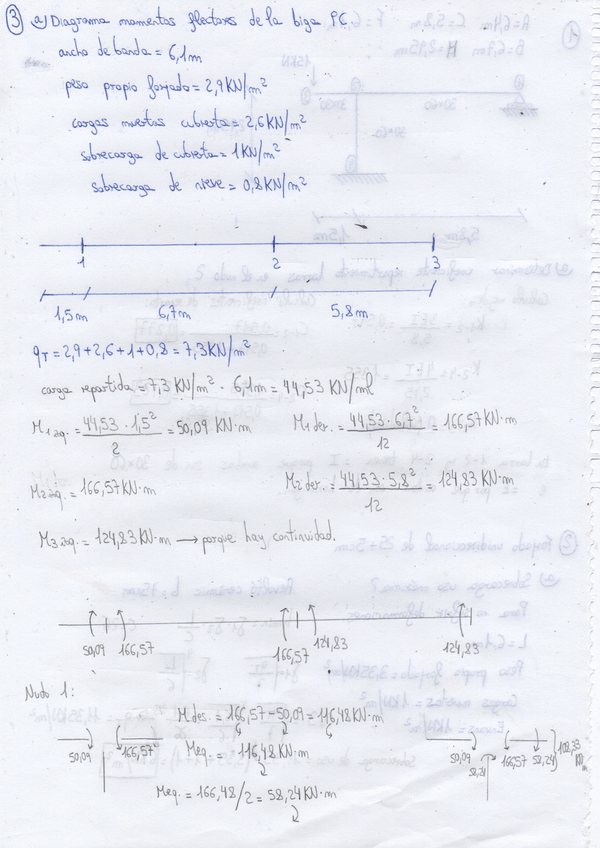 ③ a) Diagrama momentos flectores de la biga PC.
ancho de banda = 6,1m
peso propio forjado = 2,9 KN/m²
cargas muertas cubierta = 2,6 KN/m²
sobrecarga de cubierta = 1 KN/m²
sobrecarga de nieve = 0,8 KN/m²
1 2 3
1,5m 6,7m 5,8m
qT = 2,9+2,6+1+0,8 = 7,3 KN/m²
carga repartida = 7,3 KN/m² · 6,1m = 44,53 KN/ml
M1 izq. = 44,53 · 1,5² / 2 = 50,09 KN·m M1 der. = 44,53 · 6,7² / 12 = 166,57 KN·m
M2 izq. = 166,57 KN·m M2 der. = 44,53 · 5,8² / 12 = 124,83 KN·m
M3 izq. = 124,83 KN·m → porque hay continuidad.
50,09 166,57 166,57 124,83 124,83
Nudo 1:
M des. = 166,57 - 50,09 = 116,48 KN·m
Meq. = 116,48 KN·m
Meq. = 166,48/2 = 58,24 KN·m
50,09 166,57 50,09 58,24 166,57 58,24